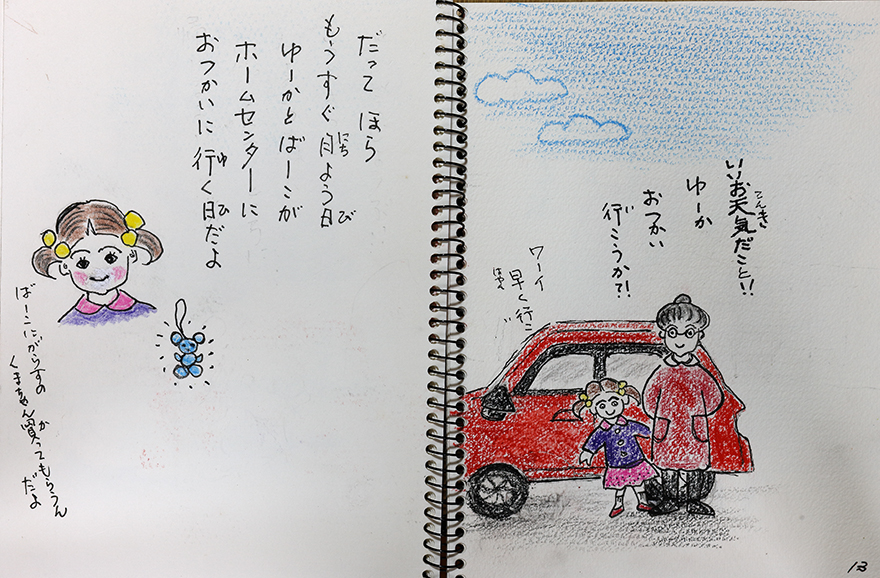 だって ほら
もうすぐ 日よう日
にち
び
ゆーかとばーこが
ホームセンターに
おつかいに 行く日だよ
ゆ
ひ
ばーこに、がらすの
くまちゃん買ってもらうん
か
だよ
いいお天気だこと!!
てんき
ゆーか
おつかい
行こうか?!
い
ワーイ
早く行こ
はや
13